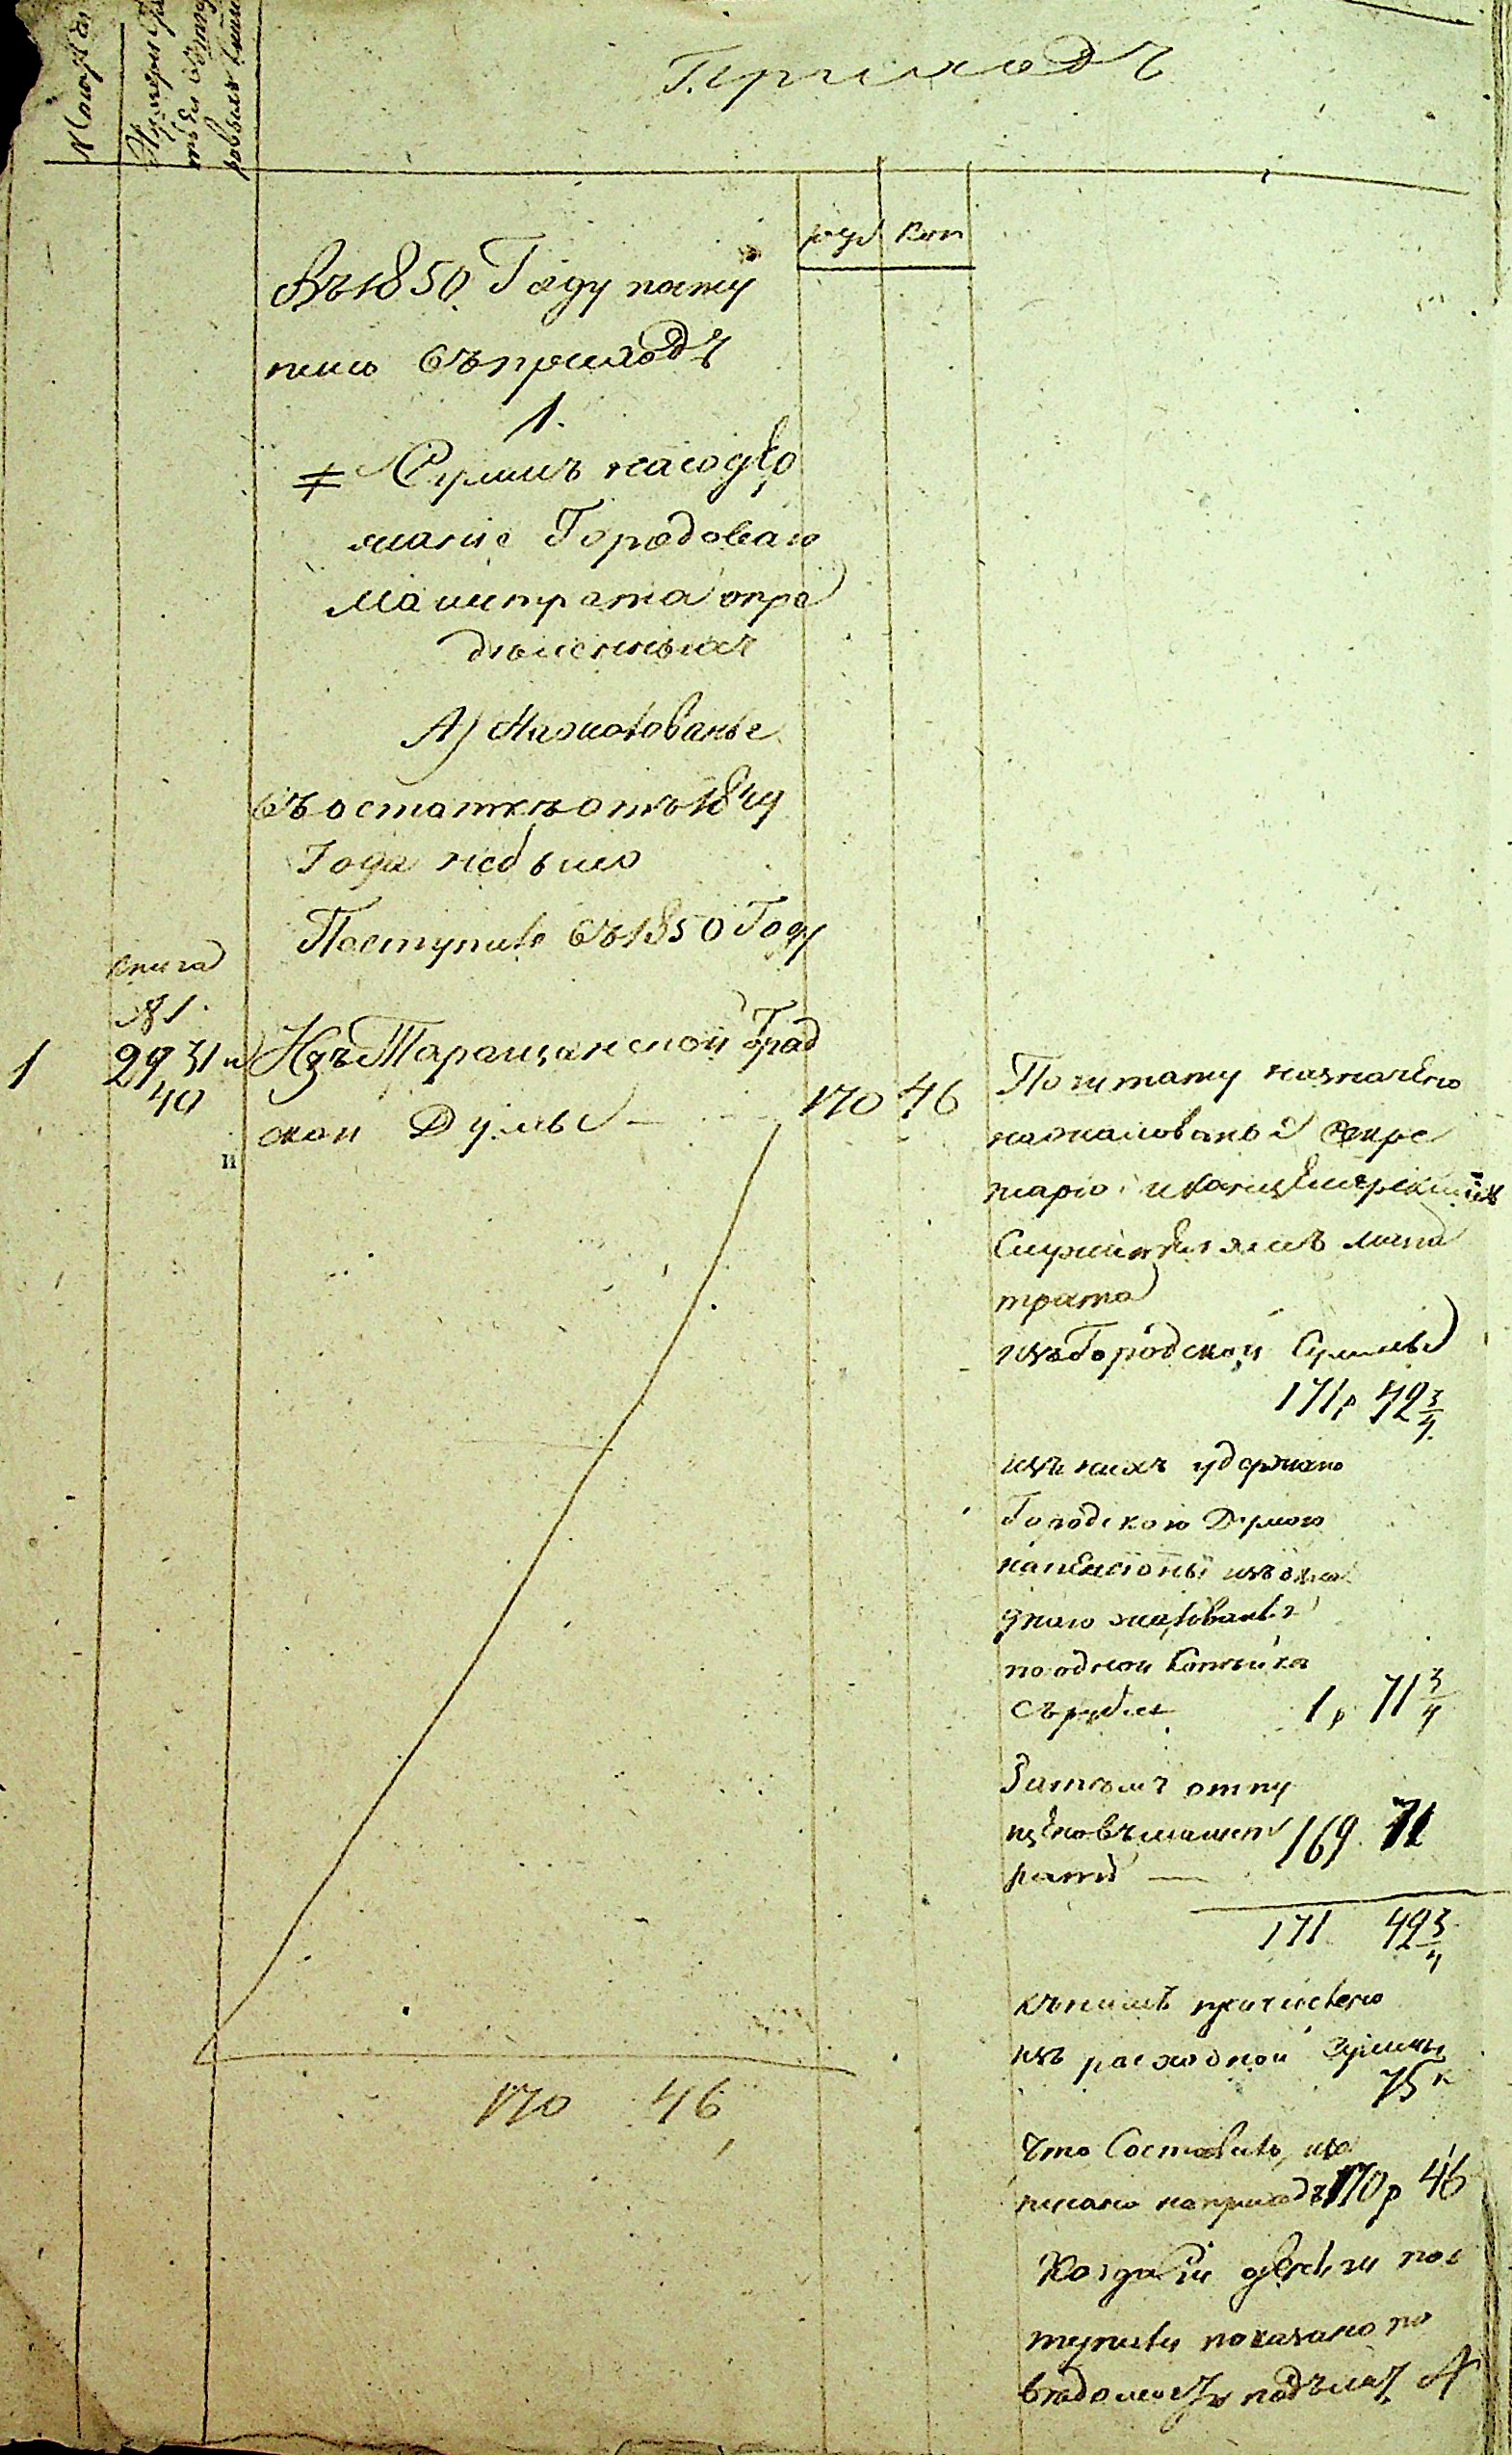 Приходъ
руб коп
Въ 1850 Году посту
пило въ приходъ
1.
Суммъ на соде
жаніе Городоваго
Магистрата опре
дѣленныхъ
А) На жалованье
въ остаткѣ отъ 1849
Года небыло
Поступило въ 1850 Году
книга
№ 1.
1 29 31 и Изъ Таращанской Град
40
ской Думы — 170 46
По штату назначено
на жалованье секре
тарю и канцелярскимъ
Служителямъ магис
трата
изъ Городской Суммы
171 р 42 3/4
изъ нихъ удержано
Городскою Думою
на пенсіоны изъ окла
днаго жалованья
по одной копѣйки
съ рубля 1 р 71 3/4
Затѣмъ отпу
щено въ магист 169 71
ратъ —
171 42 3/4
къ нимъ причислено
изъ расходной суммы
75 к
170 46
что составило, и за
писано на приходъ 170 р 46
Когда сіи деньги пос
тупили показано по
вѣдомости подъ лит. А